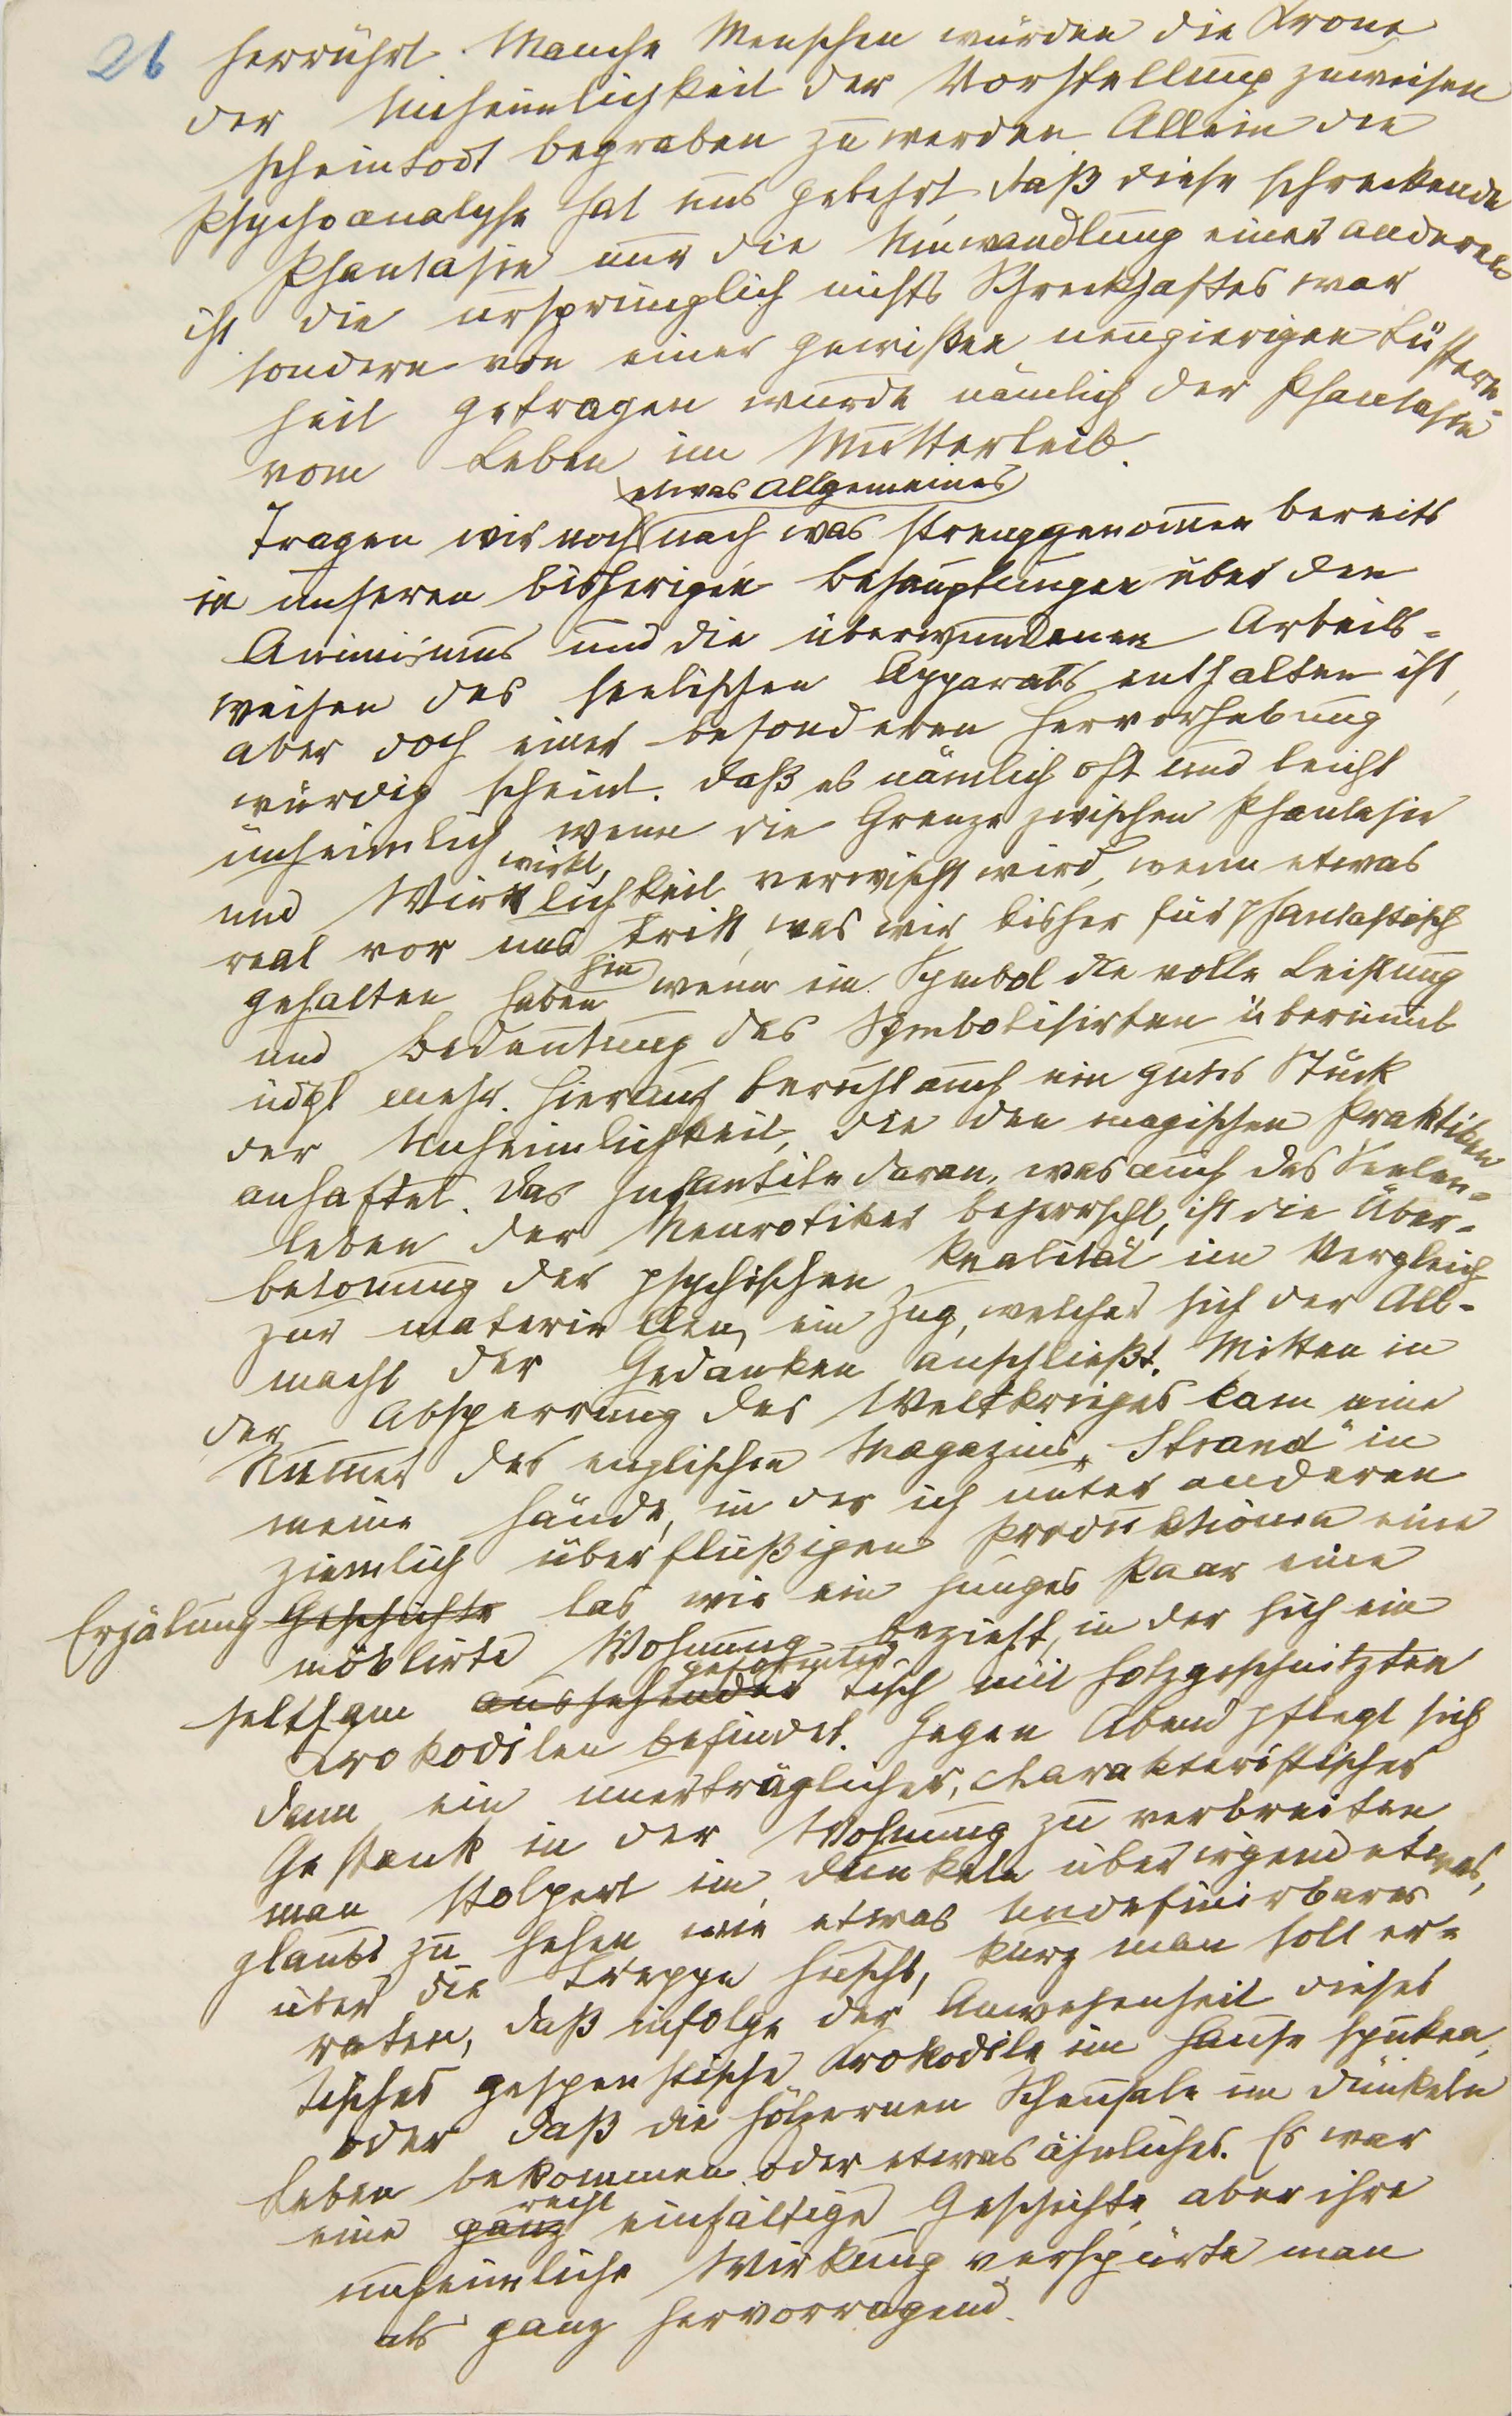 26
herrührt. Manche Menschen würden die Krone
der Unheimlichkeit der Vorstellung zuweisen
scheintodt begraben zu werden. Allein die
Psychoanalyse hat uns gelehrt, daß diese schreckende
Phantasie nur die Umwandlung einer anderen
ist die ursprünglich nichts Schreckhaftes war
sondern von einer gewißen neugierigen Lüstern-
heit getragen wurde nämlich der Phantasie
vom Leben im Mutterleib.
etwas Allgemeines
Tragen wir noch nach was strenggenomen bereits
in unseren bisherigen Behauptungen über den
Animismus und die überwundenen Arbeits-
weisen des seelischen Apparats enthalten ist,
aber doch einer besonderen Hervorhebung
würdig scheint. daß es nämlich oft und leicht
unheimlich wenn die Grenze zwischen Phantasie
wirkt,
und Wirklichkeit verwischt wird, wenn etwas
real vor uns tritt, was wir bisher für phantastisch
hin
gehalten haben wenn ein Symbol die volle Leistung
und Bedeutung des Symbolisirten übernimt
udgl mehr. Hierauf beruht auch ein gutes Stück
der Unheimlichkeit, die den magischen Praktiken
anhaftet. Das Infantile daran, was auch das Seelen-
leben der Neurotiker beherrscht, ist die Über-
betonung der psychischen Realität im Vergleich
zur materiellen, ein Zug, welcher sich der All-
macht der Gedanken anschließt. Mitten in
der Absperrung des Weltkrieges kam eine
Numer des englischen Magazins „Strand“ in
meine Hände, in der ich unter anderen
ziemlich überflüßigen Produktionen eine
Erzälung Geschichte las, wie ein junges Paar eine
möblirte Wohnung bezieht, in der sich ein
geformter
seltsam aussehender Tisch mit holzgeschnitzten
Krokodilen befindet. Gegen Abend pflegt sich
dann ein unerträglicher, charakteristischer
Gestank in der Wohnung zu verbreiten
man stolpert im Dunkeln über irgend etwas,
glaubt zu sehen wie etwas Undefinirbares
über die Treppe huscht, kurz man soll er-
raten, daß infolge der Anwesenheit dieses
Tisches gespenstische Krokodile im Hause spuken,
oder daß die hölzernen Scheusale im Dunkeln
Leben bekommen oder etwas änliches. Es war
recht
eine ganz einfältige Geschichte, aber ihre
unheimliche Wirkung verspürte man
als ganz hervorragend.